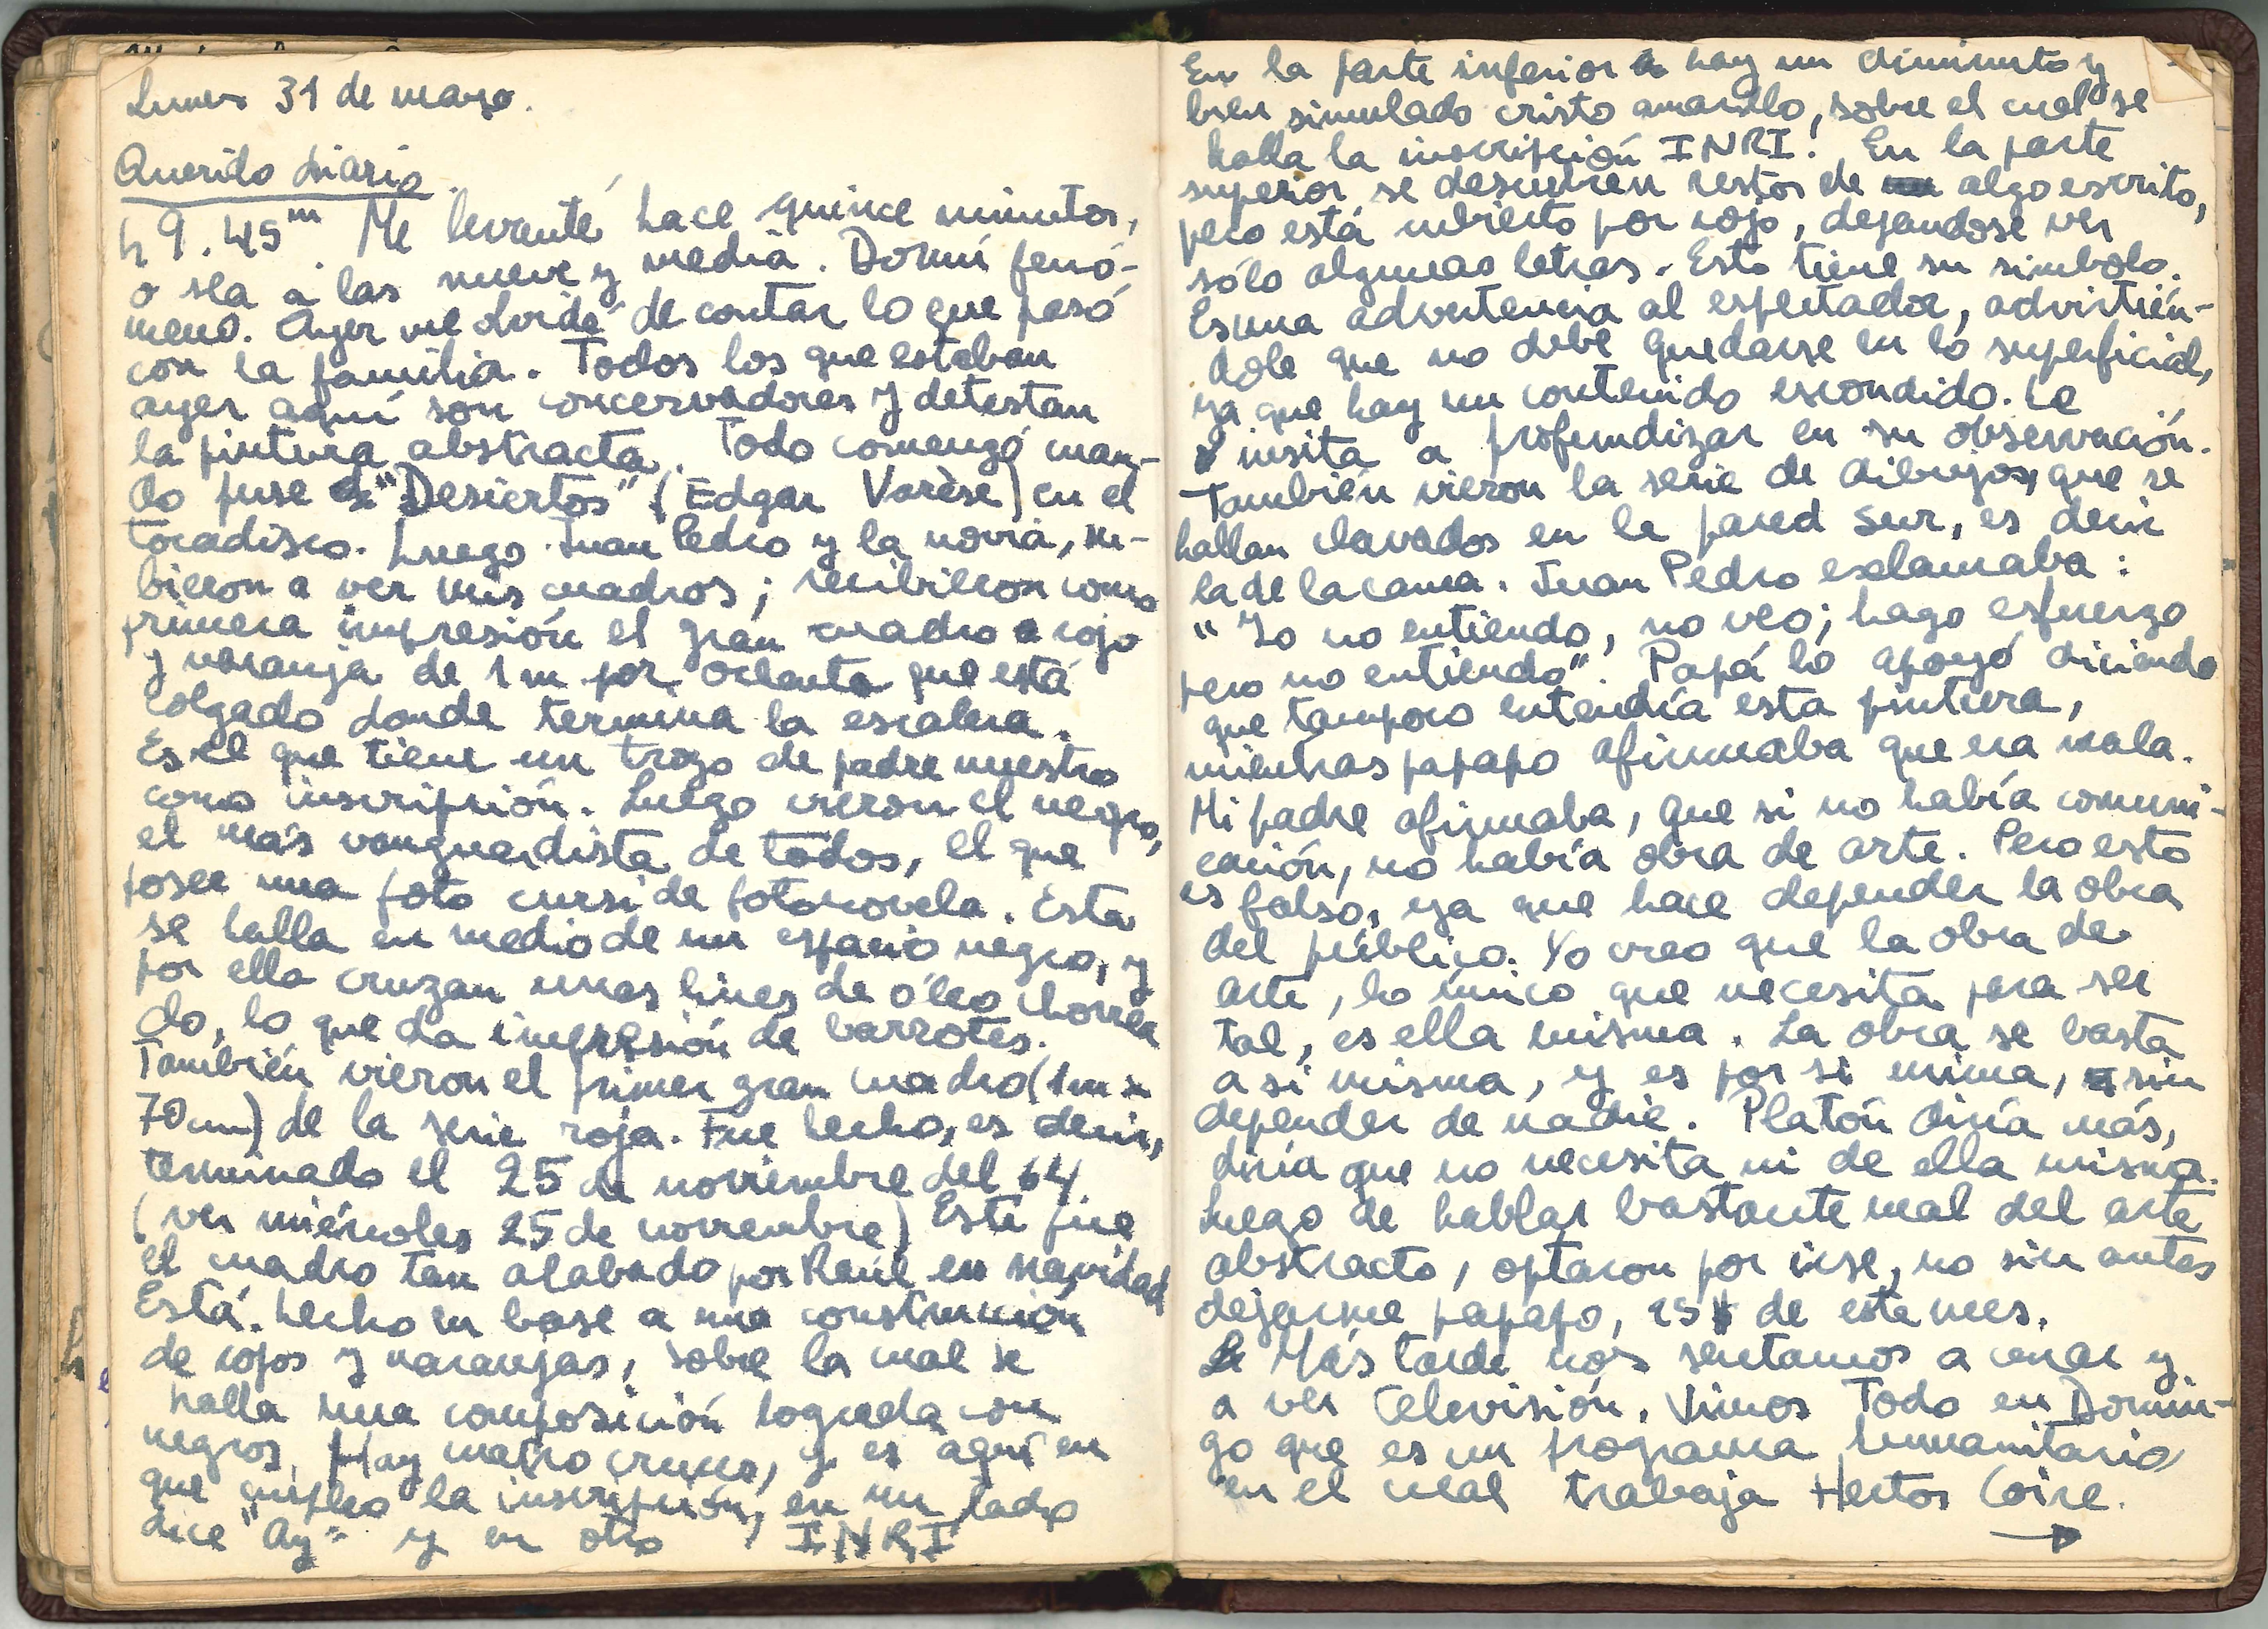 Lunes 31 de marzo.
Querido diario.
h 9.45m Me levanté hace quince minutos,
o sea a las nueve y media. Dormí fenó-
meno. Ayer me olvidé de contar lo que pasó
con la familia. Todos los que estaban
ayer aquí son concervadores y detestan
la pintura abstracta. Todo comenzó cuan-
do puse "Desiertos" (Edgar Varèse) en el
tocadisco. Luego Juan Pedro y la novia, su-
bieron a ver mis cuadros; recibieron como
primera impresión el gran cuadro rojo
y naranja de 1 m por ochenta que está
colgado donde termina la escalera.
Es el que tiene un trozo de padre nuestro
como inscripción. Luego vieron el negro,
el más vanguardista de todos, el que
posee una foto cursi de fotonovela. Esta
se halla en medio de un espacio negro, y
por ella cruzan unas lines de óleo chorrea
do, lo que da impresión de barrotes.
También vieron el primer gran cuadro (1m x
70 cm) de la serie roja. Fue hecho, es decir,
terminado el 25 de noviembre del 64.
(ver miércoles 25 de noviembre) Este fue
el cuadro tan alabado por Raúl en navidad
Está hecho en base a una construcción
de rojos y naranjas, sobre la cual se
halla una composición lograda con
negros. Hay cuatro cruces, y es aquí en
que empleo la inscripción, en un lado
dice "Ay" y en otro INRI
En la parte inferior hay un diminuto y
bien simulado cristo amarillo, sobre el cual se
halla la inscripción INRI! En la parte
superior se descubren restos de algo escrito,
pero está cubierto por rojo, dejandose ver
sólo algunas letras. Esto tiene su simbolo.
Es una advertencia al espectador, advirtién-
dole que no debe quedarse en lo superficial,
ya que hay un contenido escondido. Le
insita a profundizar en su observación.
También vieron la serie de dibujos, que se
hallan clavados en la pared sur, es decir
la de la cama. Juan Pedro exlamaba:
"Yo no entiendo, no veo; hago esfuerzo
pero no entiendo". Papá lo apoyó diciendo
que tampoco entendía esta pintura,
mientras papapo afirmaba que era mala.
Mi padre afirmaba, que si no había comuni-
cación, no había obra de arte. Pero esto
es falso, ya que hace depender la obra
del público. Yo creo que la obra de
arte, lo único que necesita para ser
tal, es ella misma. La obra se basta
a sí misma, y es por si mima, sin
depender de nadie. Platón diría más,
diría que no necesita ni de ella misma.
Luego de hablar bastante mal del arte
abstracto, optaron por irse, no sin antes
dejarme papapo, 15 de este mes.
Más tarde nos sentamos a cenar y
a ver televisión. Vimos Todo en Domin-
go que es un programa humanitario
en el cual trabaja Hector Coire.
→